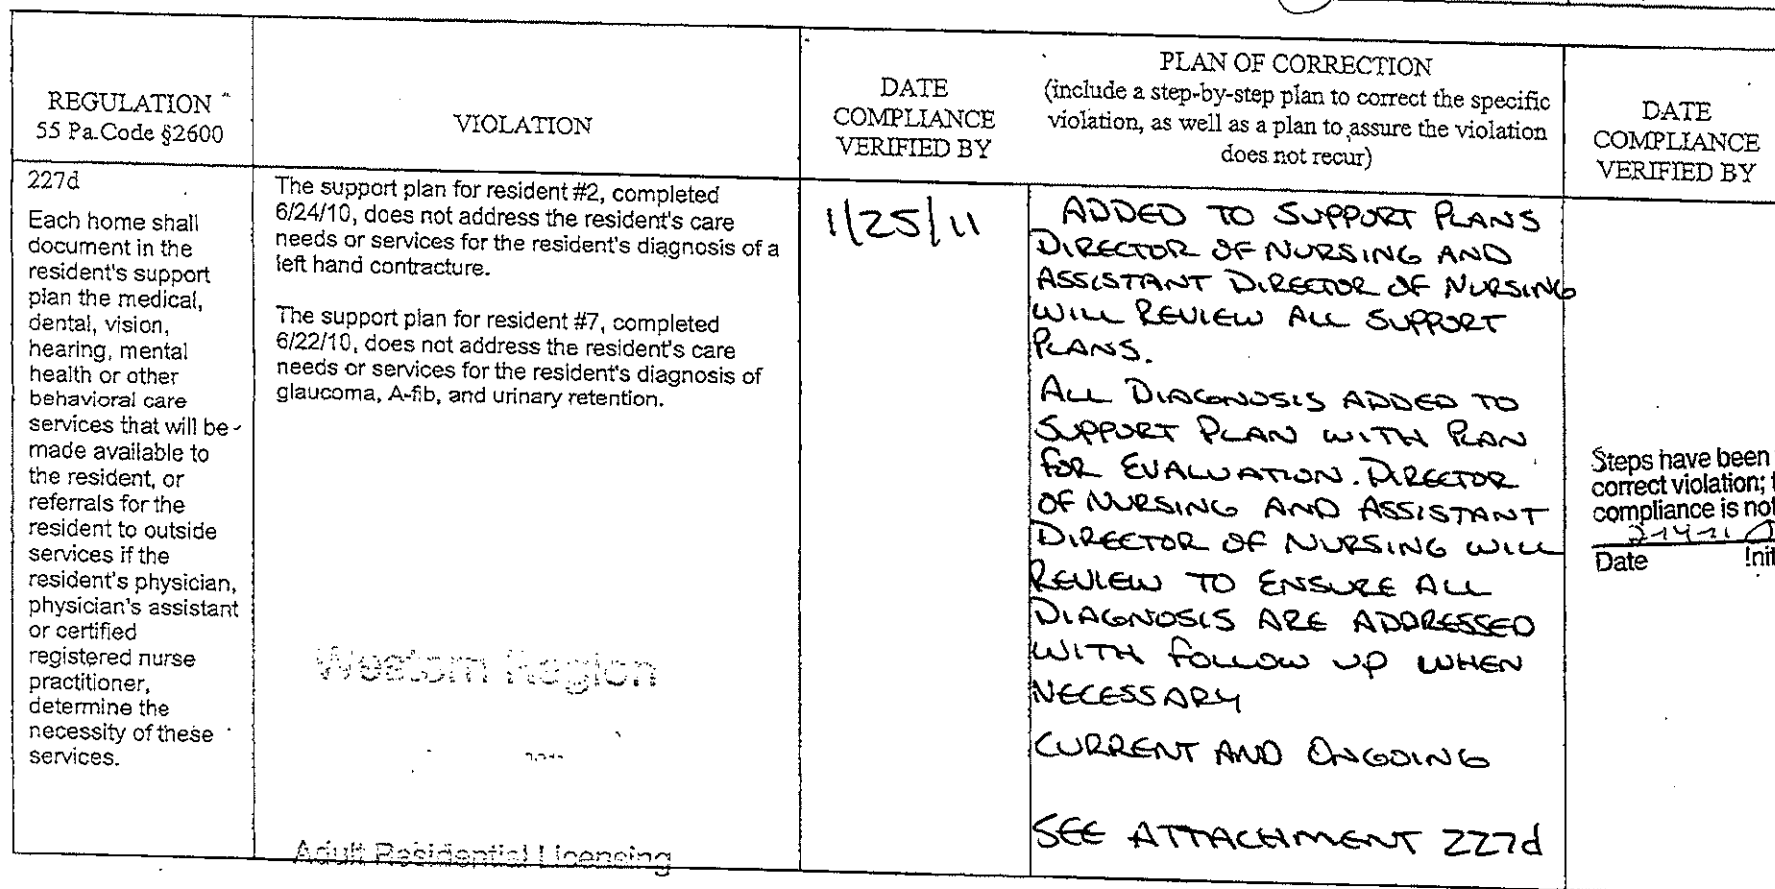 REGULATION
55 Pa.Code §2600
VIOLATION
DATE
COMPLIANCE
VERIFIED BY
PLAN OF CORRECTION
(include a step-by-step plan to correct the specific
violation, as well as a plan to assure the violation
does not recur)
DATE
COMPLIANCE
VERIFIED BY
227d
Each home shall
document in the
resident's support
plan the medical,
dental, vision,
hearing, mental
health or other
behavioral care
services that will be
made available to
the resident, or
referrals for the
resident to outside
services if the
resident's physician,
physician's assistant
or certified
registered nurse
practitioner,
determine the
necessity of these
services.
The support plan for resident #2, completed
6/24/10, does not address the resident's care
needs or services for the resident's diagnosis of a
left hand contracture.
The support plan for resident #7, completed
6/22/10, does not address the resident's care
needs or services for the resident's diagnosis of
glaucoma, A-fib, and urinary retention.
Western Region
Adult Residential Licensing
1/25/11
ADDED TO SUPPORT PLANS
DIRECTOR OF NURSING AND
ASSISTANT DIRECTOR OF NURSING
WILL REVIEW ALL SUPPORT
PLANS.
ALL DIAGNOSIS ADDED TO
SUPPORT PLAN WITH PLAN
FOR EVALUATION. DIRECTOR
OF NURSING AND ASSISTANT
DIRECTOR OF NURSING WILL
REVIEW TO ENSURE ALL
DIAGNOSIS ARE ADDRESSED
WITH FOLLOW UP WHEN
NECESSARY
CURRENT AND ONGOING
SEE ATTACHMENT 227d
Steps have been
correct violation;
compliance is not
Date Init